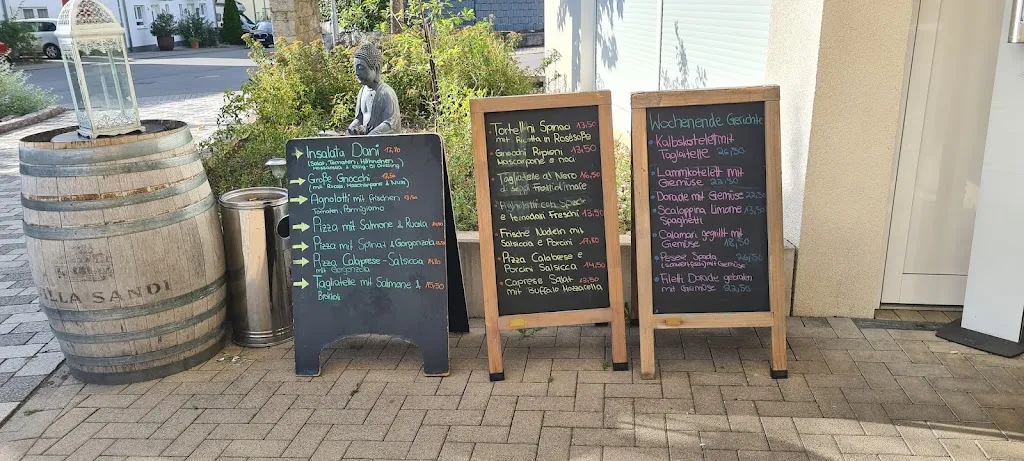 VILLA SANDI
Insalata Dani 12,70
(Salat, Tomaten, Hähnchen,
Mozzarella & Essig-Öl Dressing)
Große Gnocchi 12,50
(mit Rucola, Mascharpone & Nuss)
Agnolotti mit frischen
Tomaten, Parmigiano
Pizza mit Salmone & Rucola
Pizza mit Spinat & Gorgonzola
Pizza Calaprese-Salsiccia
mit Gorgonzola
Tagliatelle mit Salmone & 15,50
Brokkoli
Tortellini Spinaci 13,50
mit Ricotta in Rosésoße
Gnocchi Ripieni 13,50
Mascarpone e noci
Tagliatelle al Nero 16,50
di sepia Frutti di Mare
Agnolotti con Speck
e Pomodori Freschi 13,50
Frische Nudeln mit
Salsiccia e Porcini 14,50
Pizza Calabrese e
Porcini Salsicca 14,50
Caprese Salat 13,50
mit Buffalo Mozzarella
Wochenende Gerichte
Kalbskotelett mit
Tagliatelle 26,50
Lammkotelett mit
Gemüse 23,50
Dorade mit Gemüse 22,50
Scaloppina Limone
Spaghetti
Calamari gegrillt mit
Gemüse 18,50
Pesce Spada 26,50
(Schwertfisch) mit Gemüse
Filetti Dorade gebraten
mit Gemüse 22,50